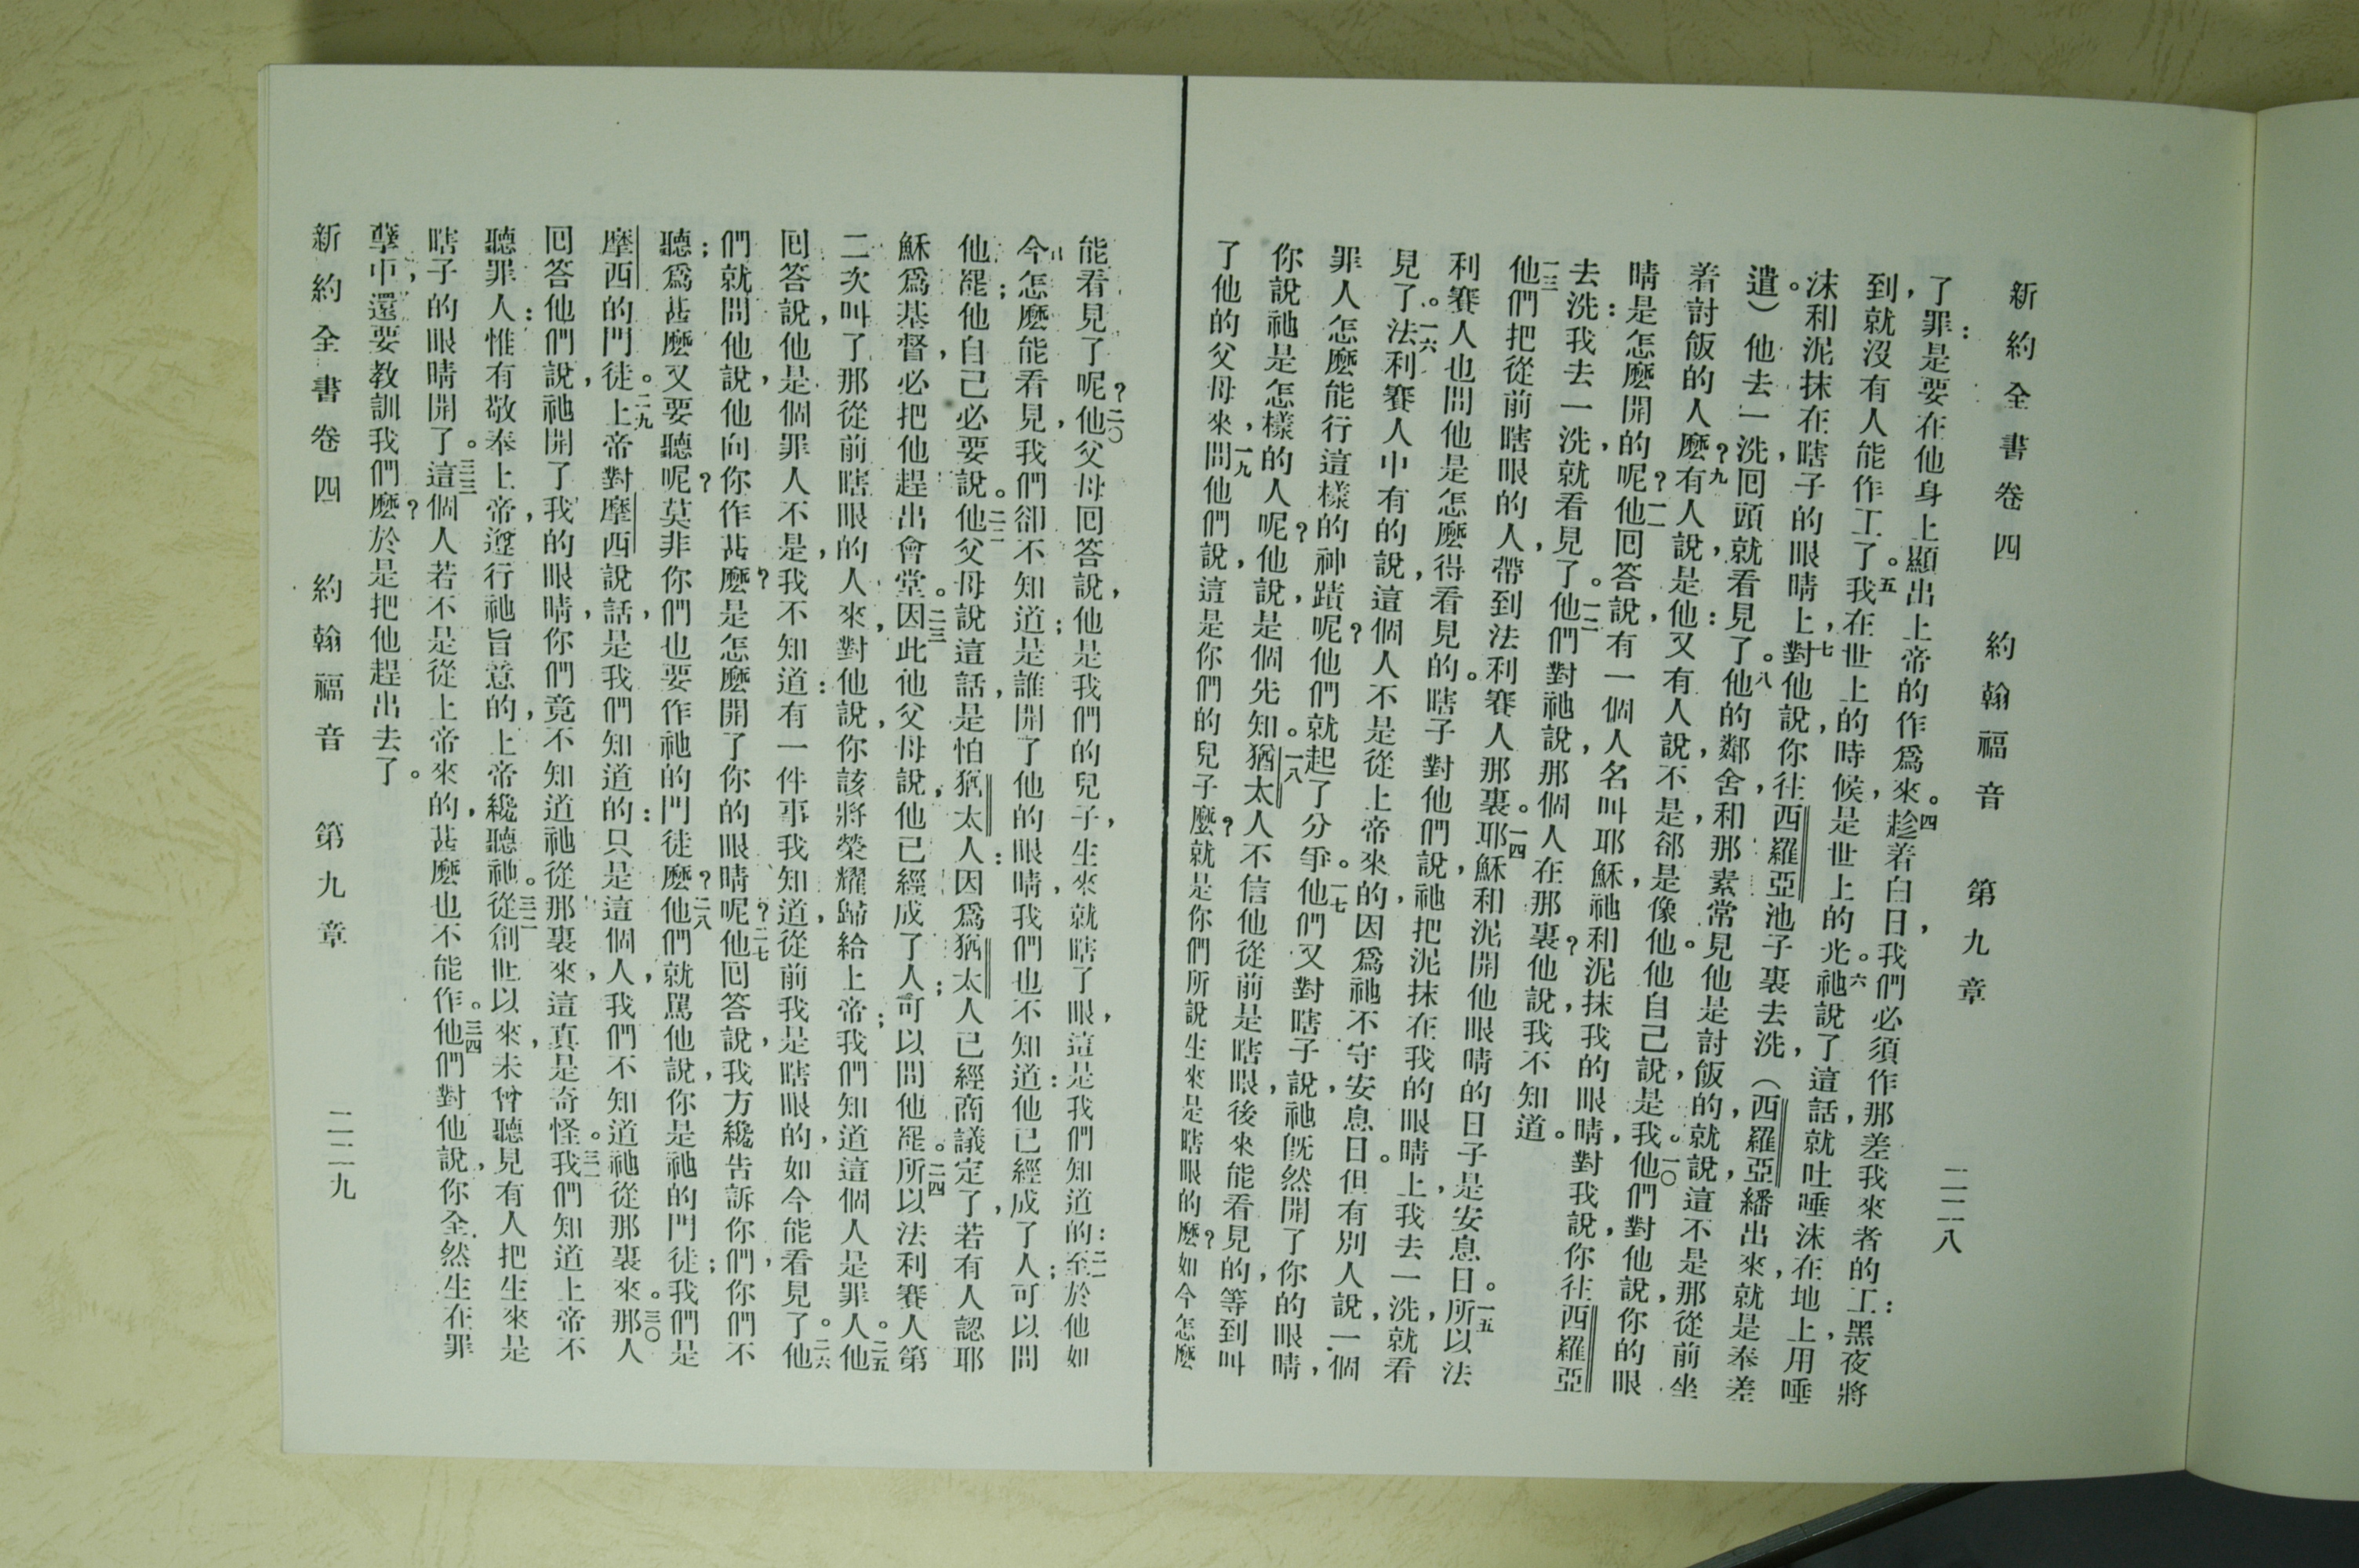 新約全書卷四　約翰福音　第九章　二二八
了罪：是要在他身上顯出上帝的作爲來。四趁着白日，我們必須作那差我來者的工：黑夜將
到，就沒有人能作工了。五我在世上的時候，是世上的光。六祂說了這話，就吐唾沫在地上，用唾
沫和泥抹在瞎子的眼睛上，七對他說，你往西羅亞池子裏去洗，（西羅亞繙出來，就是奉差
遣）他去一洗，回頭就看見了。八他的鄰舍，和那素常見他是討飯的，就說，這不是那從前坐
着討飯的人麼？九有人說，是他：又有人說，不是，卻是像他。他自己說，是我。一〇他們對他說，你的眼
睛是怎麼開的呢？一一他回答說，有一個人名叫耶穌，祂和泥抹我的眼睛，對我說，你往西羅亞
去洗：我去一洗，就看見了。一二他們對祂說，那個人在那裏？他說，我不知道。
一三他們把從前瞎眼的人，帶到法利賽人那裏。一四耶穌和泥開他眼睛的日子是安息日。一五所以法
利賽人也問他是怎麼得看見的。瞎子對他們說，祂把泥抹在我的眼睛上，我去一洗，就看
見了。一六法利賽人中有的說，這個人不是從上帝來的，因爲祂不守安息日。但有別人說，一個
罪人怎麼能行這樣的神蹟呢？他們就起了分爭。一七他們又對瞎子說，祂旣然開了你的眼睛，
你說祂是怎樣的人呢？他說，是個先知。一八猶太人不信他從前是瞎眼，後來能看見的，等到叫
了他的父母來，一九問他們說，這是你們的兒子麼？就是你們所說生來是瞎眼的麼？如今怎麼
能看見了呢？二〇他父母回答說，他是我們的兒子，生來就瞎了眼，這是我們知道的：二一至於他如
今怎麼能看見，我們卻不知道；是誰開了他的眼睛，我們也不知道：他已經成了人；可以問
他罷；他自己必要說。二二他父母說這話，是怕猶太人：因爲猶太人已經商議定了，若有人認耶
穌爲基督，必把他趕出會堂。二三因此他父母說，他已經成了人；可以問他罷。二四所以法利賽人第
二次叫了那從前瞎眼的人來，對他說，你該將榮耀歸給上帝；我們知道這個人是罪人。二五他
回答說，他是個罪人不是，我不知道：有一件事我知道，從前我是瞎眼的，如今能看見了。二六他
們就問他說，他向你作甚麼？是怎麼開了你的眼睛呢？二七他回答說，我方纔告訴你們，你們不
聽；爲甚麼又要聽呢？莫非你們也要作祂的門徒麼？二八他們就罵他說，你是祂的門徒；我們是
摩西的門徒。二九上帝對摩西說話，是我們知道的：只是這個人，我們不知道祂從那裏來。三〇那人
回答他們說，祂開了我的眼睛，你們竟不知道祂從那裏來，這真是奇怪。三一我們知道上帝不
聽罪人：惟有敬奉上帝，遵行祂旨意的，上帝纔聽祂。三二從創世以來，未曾聽見有人把生來是
瞎子的眼睛開了。三三這個人若不是從上帝來的，甚麼也不能作。三四他們對他說，你全然生在罪
孽中，還要教訓我們麼？於是把他趕出去了。
新約全書卷四　約翰福音　第九章　二二九